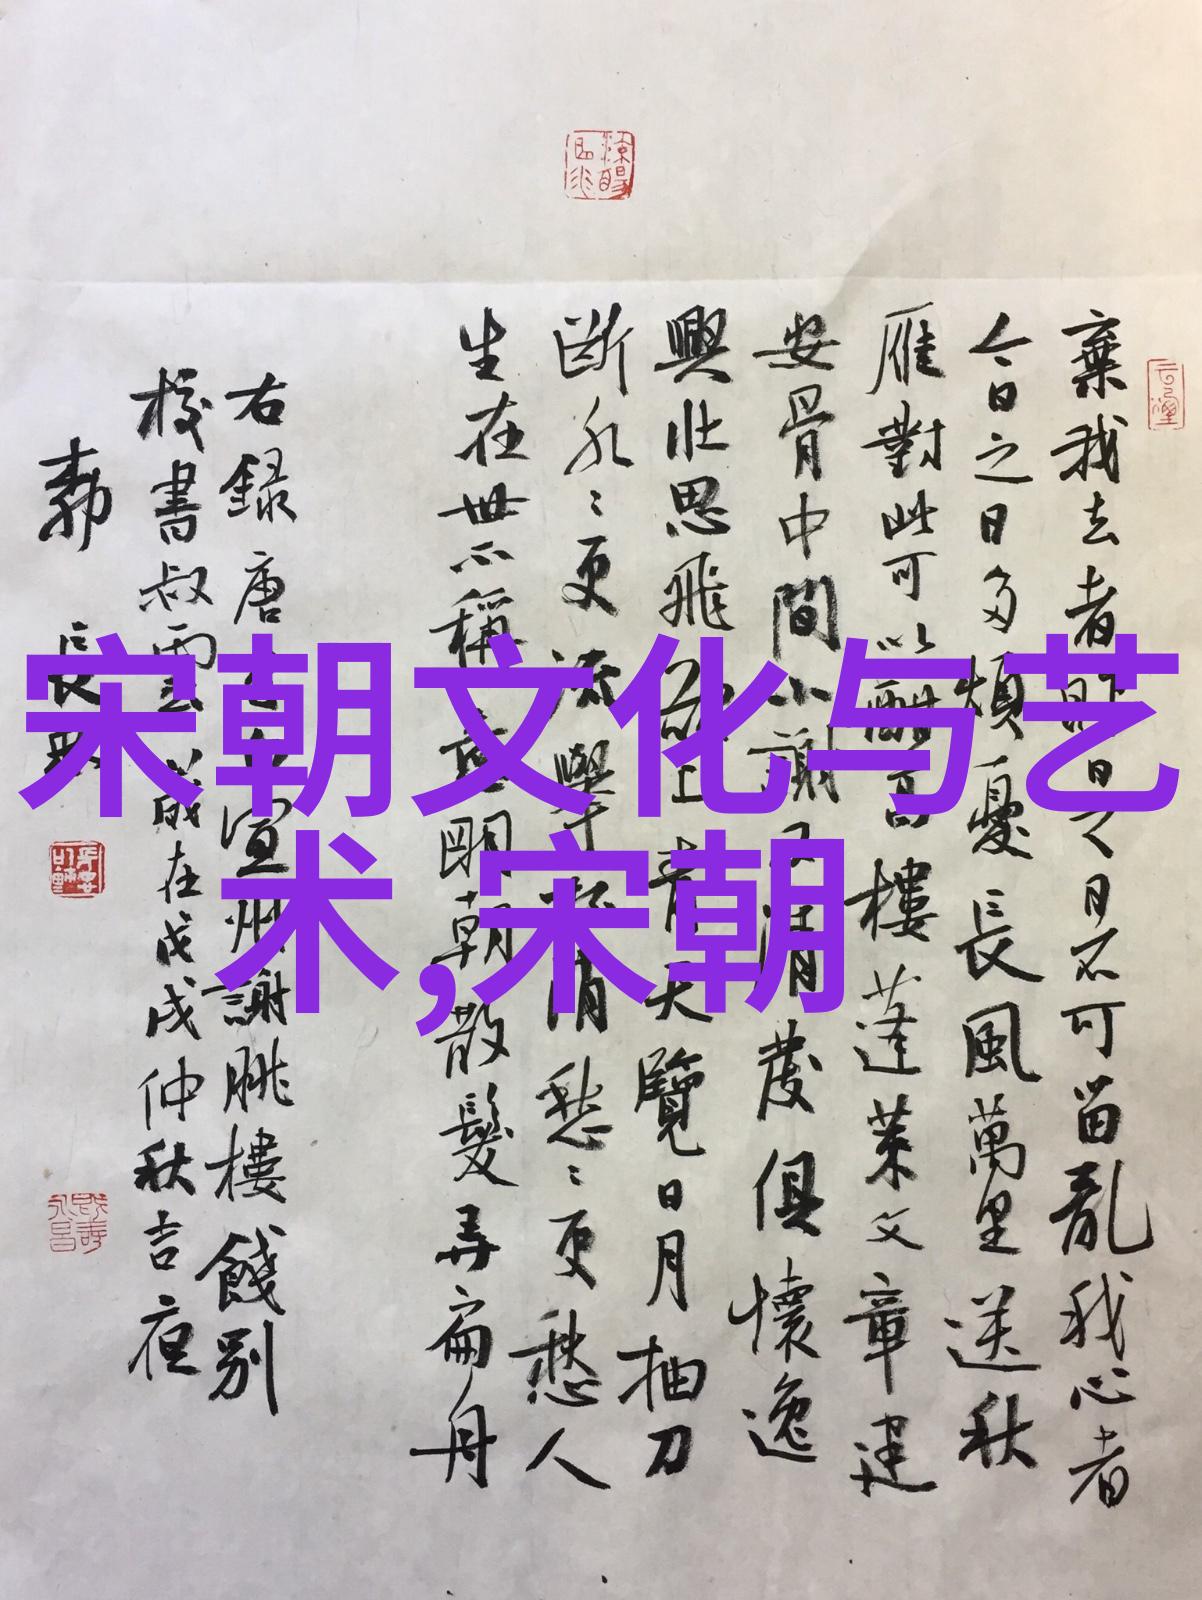 宋朝文化与艺
术,宋朝
棄我去者昨日之日不可留亂我心者
今日之日多煩憂長風萬里送秋
雁對此可以酣高樓蓬萊文章建
安骨中間小謝又清發俱懷逸
興壯思飛欲上青天覽日月抽刀
斷水〻更流舉杯消愁〻更愁人
生在世不稱意明朝散髮弄扁舟
右錄唐宣州謝朓樓餞別
校書叔雲歲在戊戌仲秋吉夜
長